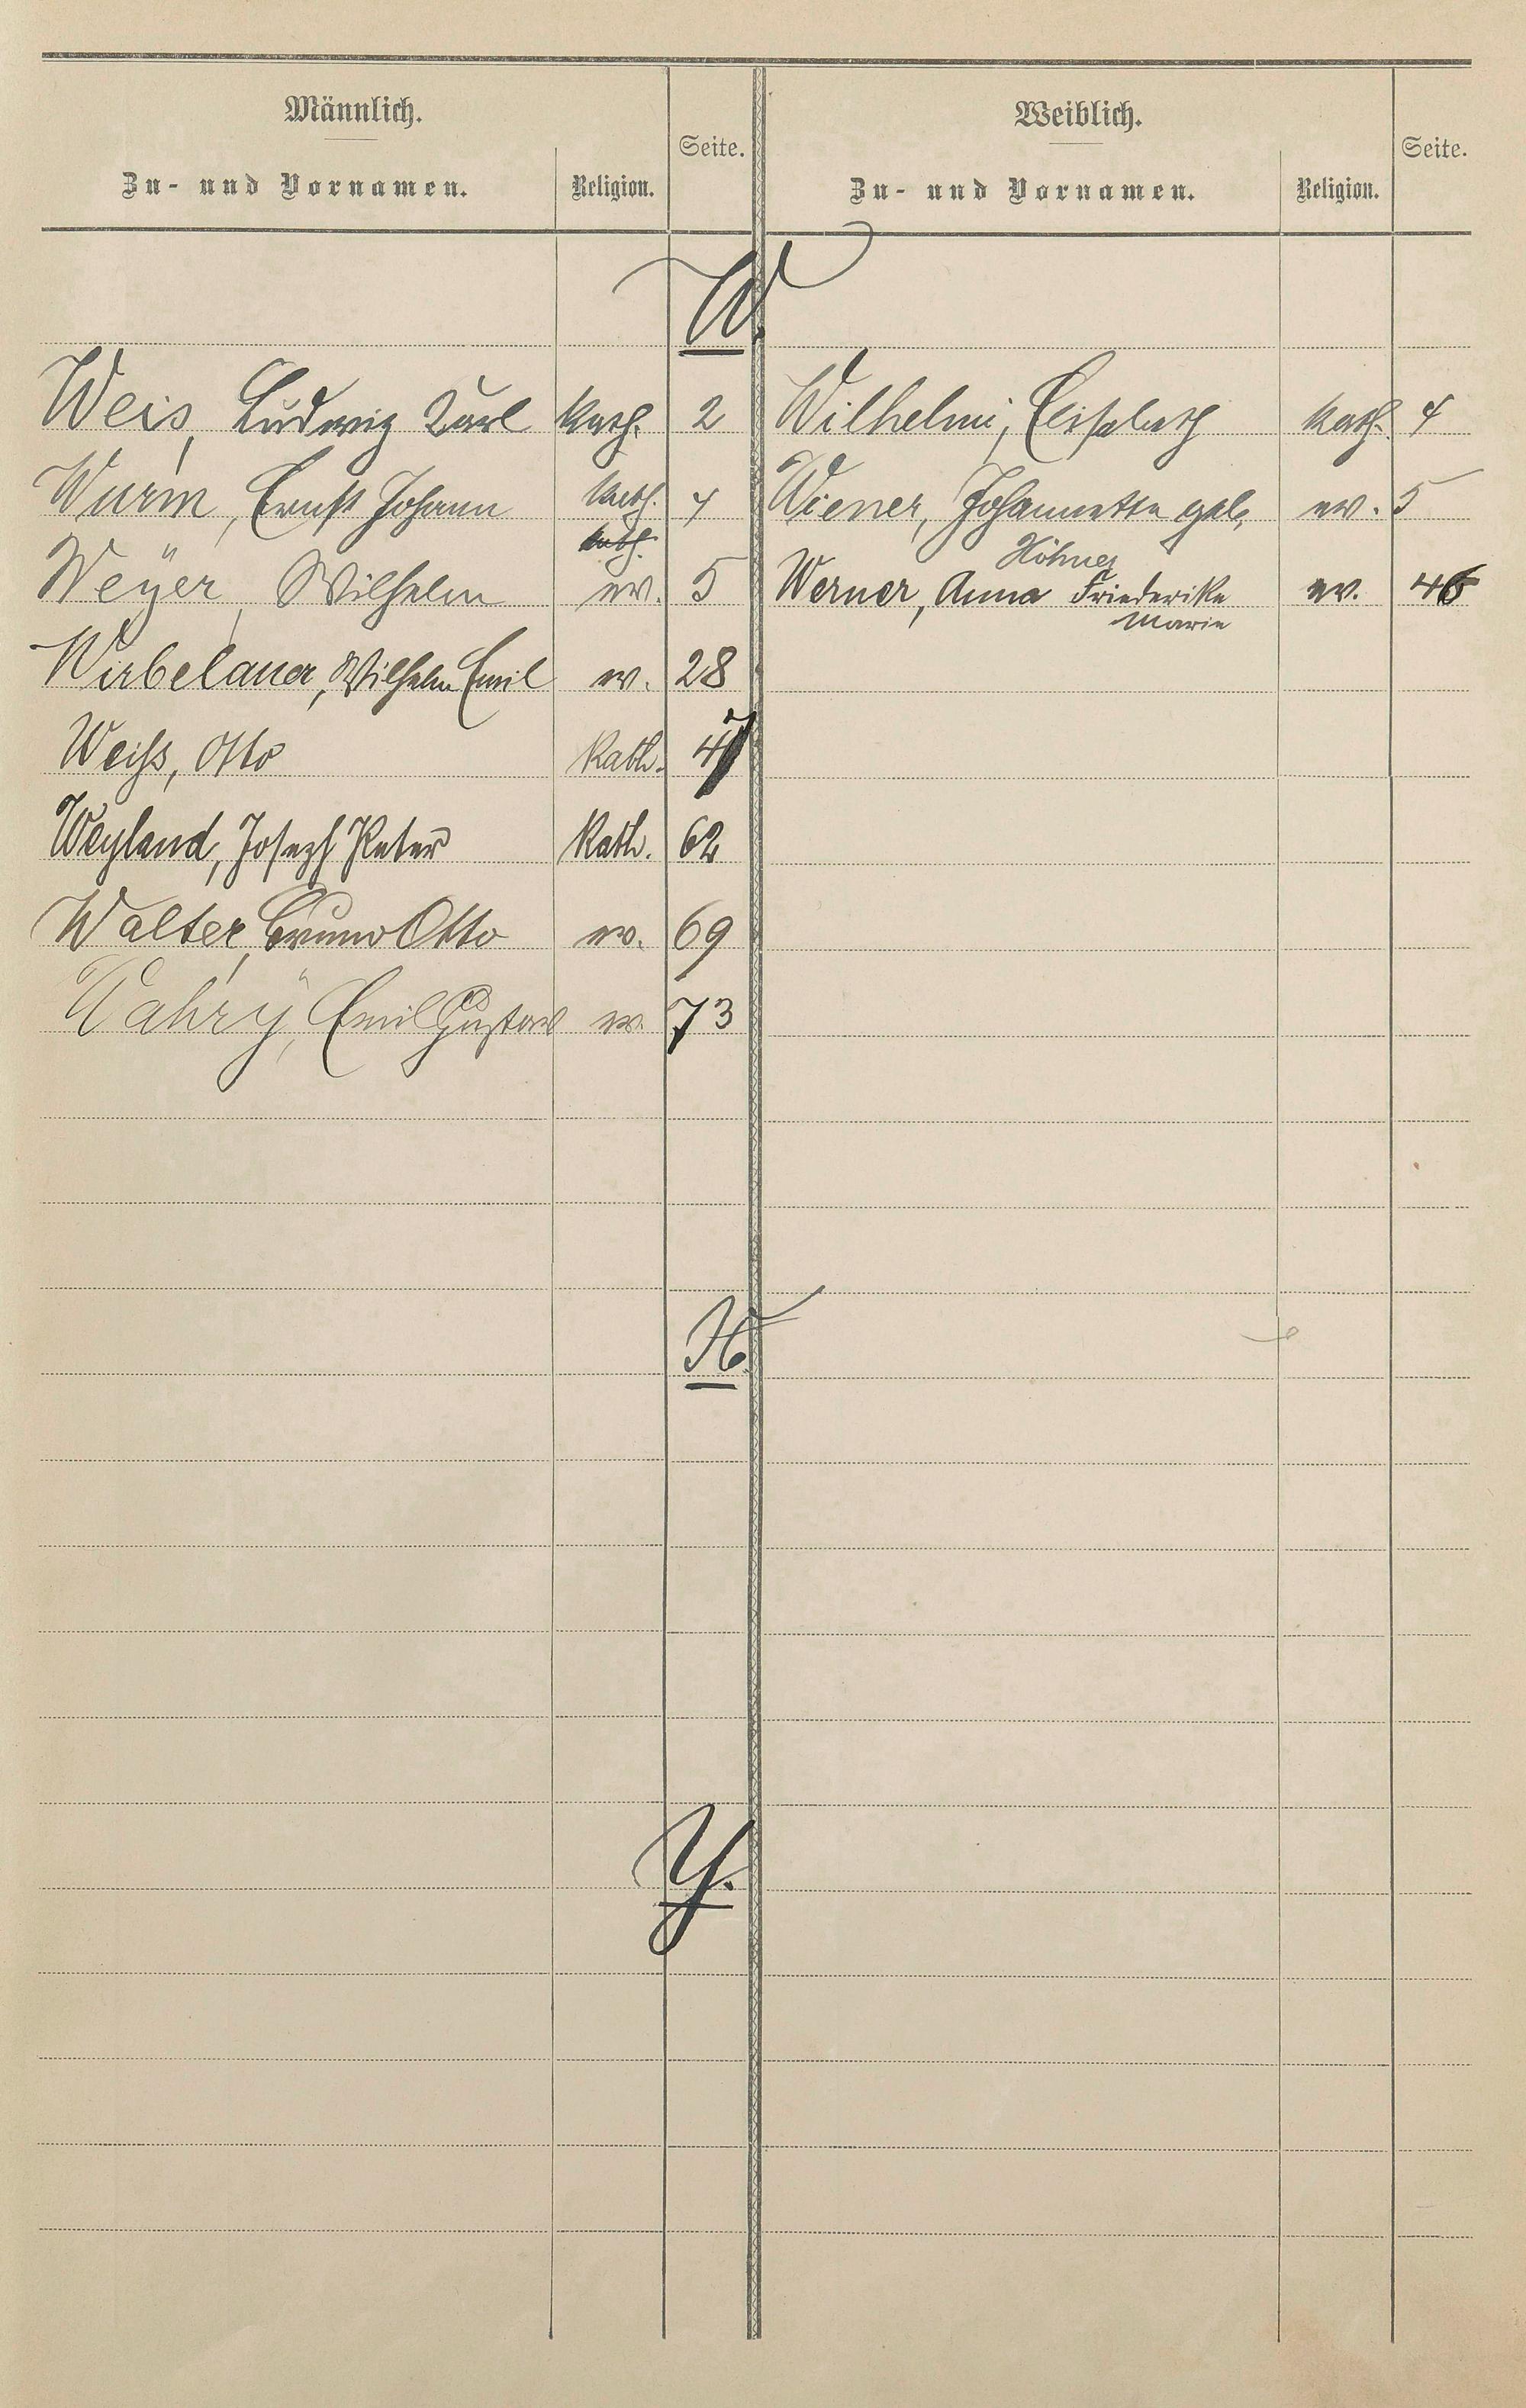 Männlich.
Zu- und Vornamen.
Religion.
Seite.
Weiblich.
Zu- und Vornamen.
Religion.
Seite.
W.
Weis, Ludwig Karl kath. 2
Wilhelmi, Elisabeth kath. 4
Wurm, Ernst Johann kath. 4
Wiener, Johannette geb. ev. 5
Höhner
kath.
Weÿer, Wilhelm ev. 5
Werner, Anna Friederike ev. 46
Marie
Wirbelauer, Wilhelm Emil ev. 28
Weiss, Otto kath. 47
Weyland, Joseph Peter kath. 62
Walter, Bruno Otto ev. 69
Wahrÿ, Emil Gustav ev. 73
X.
Y.